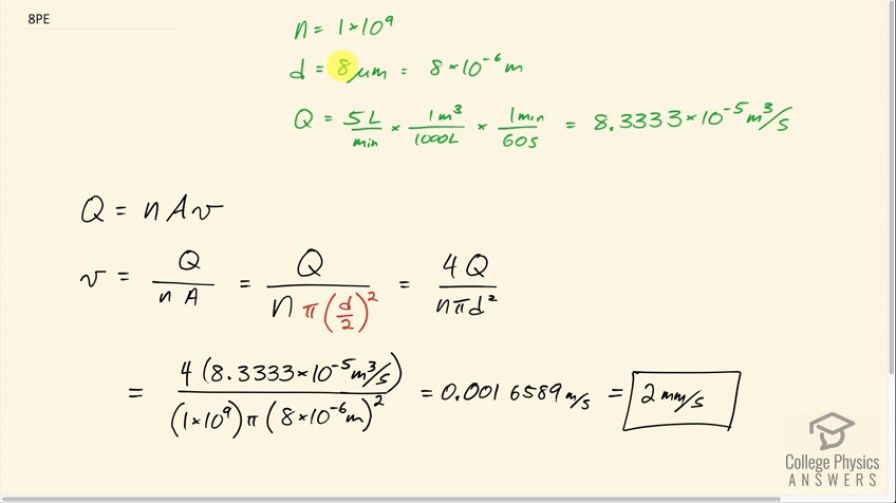 8PE
n = 1×10⁹
d = 8 μm = 8×10⁻⁶ m
Q = 5L/min × 1m³/1000L × 1min/60s = 8.3333×10⁻⁵ m³/s
Q = nAv
v = Q/(nA) = Q/(nπ(d/2)²) = 4Q/(nπd²)
= 4(8.3333×10⁻⁵ m³/s)/((1×10⁹)π(8×10⁻⁶m)²) = 0.0016589 m/s = 2 mm/s
College Physics
ANSWERS